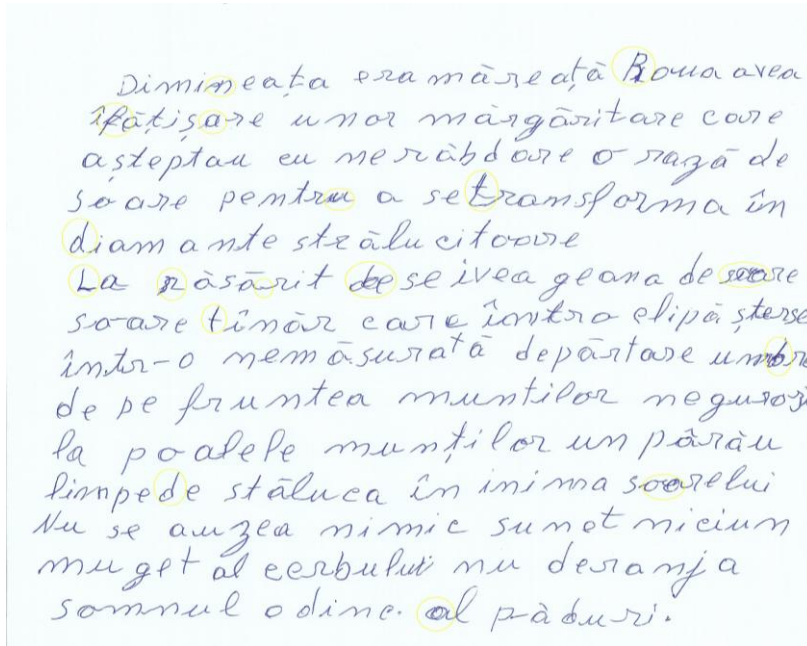 Dimineața era măreață Roua avea
îfățișare unor mărgăritare care
așteptau cu nerăbdare o rază de
soare pentru a se transforma în
diamante strălucitoare
La răsărit se ivea geana de soare
soare tînăr care întro clipă șterse
într-o nemăsurată depărtare umbre
de pe fruntea muntilor neguroși
la poalele munților un părău
limpede stăluca în inima soarelui
Nu se auzea nimic sunet niciun
muget al cerbului nu deranja
somnul odinc. al păduri.